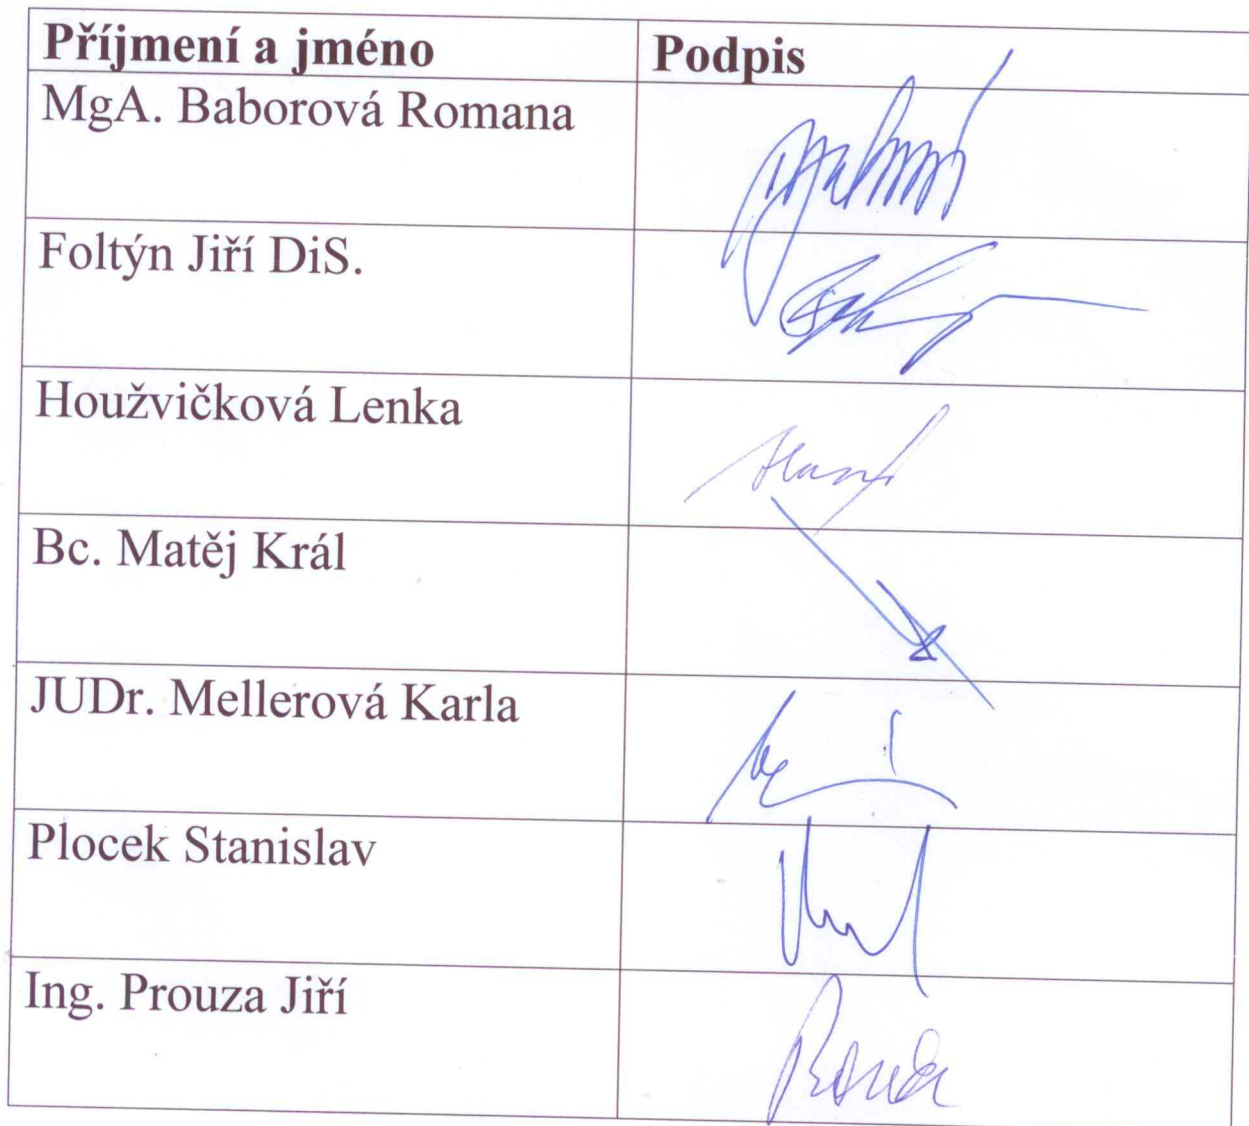 Příjmení a jméno Podpis
MgA. Baborová Romana
Foltýn Jiří DiS.
Houžvičková Lenka
Bc. Matěj Král
JUDr. Mellerová Karla
Plocek Stanislav
Ing. Prouza Jiří